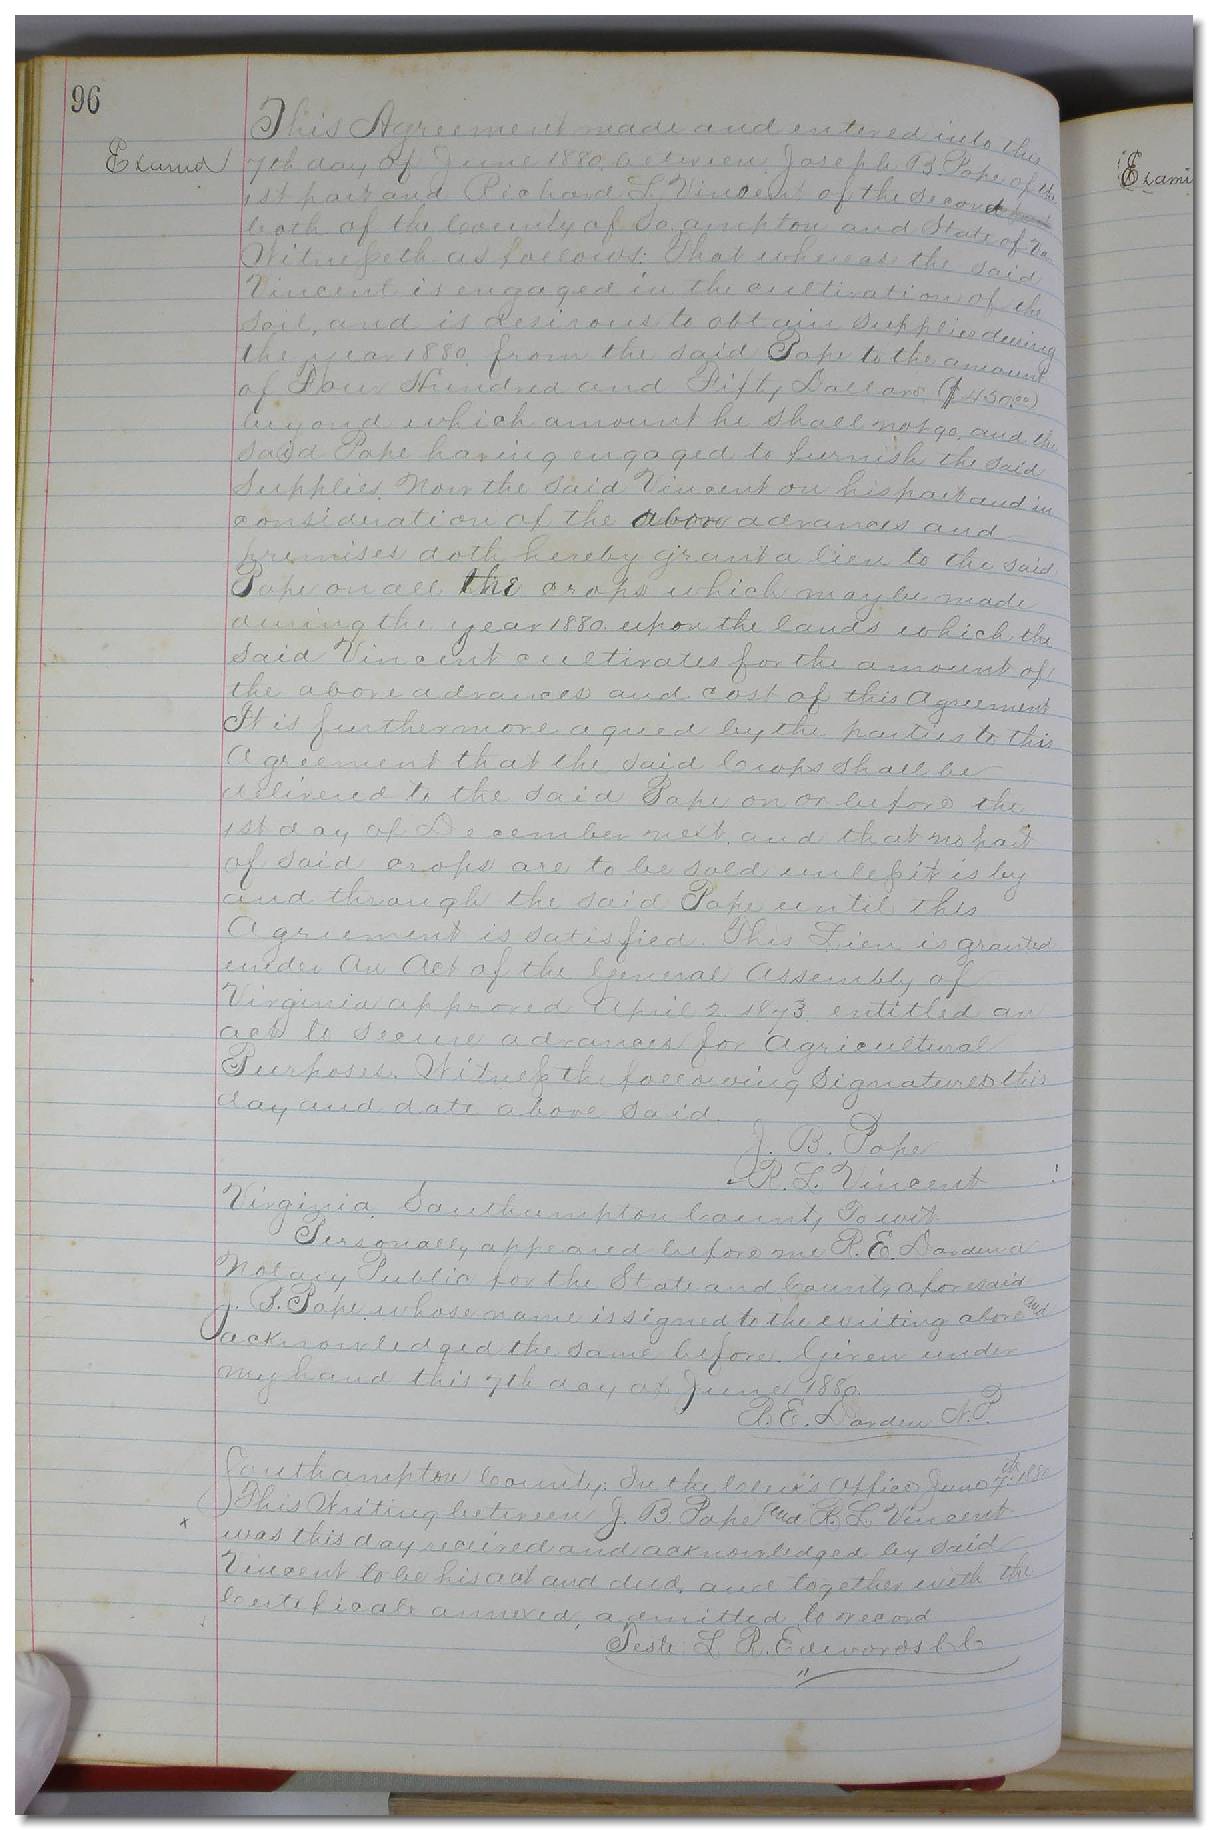 96
This Agreement made and entered into this
Examd 7th day of June 1880. between Joseph B. Pape of the
1st part and Richard L. Vincent of the second part
both of the County of So,ampton and State of Va
Witnesseth as follows: That whereas the said
Vincent is engaged in the cultivation of the
soil, and is desirous to obtain supplies during
the year 1880. from the said Pape to the amount
of Four Hundred and Fifty Dollars ($450.00)
beyond which amount he shall not go, and the
said Pape having engaged to furnish the said
Supplies. Now the said Vincent on his part and in
consideration of the above advances and
premises doth hereby grant a lien to the said
Pape on all the crops which may be made
during the year 1880. upon the lands which the
said Vincent cultivates for the amount of
the above advances and cost of this Agreement
It is furthermore agreed by the parties to this
Agreement that the said Crops shall be
delivered to the said Pape on or before the
1st day of December next, and that no part
of said crops are to be sold unless it is by
and through the said Pape until this
Agreement is satisfied. This Lien is granted
under An Act of the General Assembly of
Virginia approved April 2. 1873. entitled an
act to secure advances for Agricultural
Purposes. Witness the following Signatures this
day and date above said.
J. B. Pape
R. L. Vincent
Virginia. Southampton County, To wit.
Personally appeared before me R. E. Darden a
Notary Public for the State and County aforesaid
J. B. Pape whose name is signed to the writing above and
acknowledged the same before. Given under
my hand this 7th day of June 1880.
R. E. Darden N. P.
Southampton County: In the Clerk's Office June 7th 1880
This Writing between J. B. Pape and R. L. Vincent
x was this day received and acknowledged by said
Vincent to be his act and deed, and together with the
Certificate annexed, admitted to record
Teste L. R. Edwards C. C.
Exami